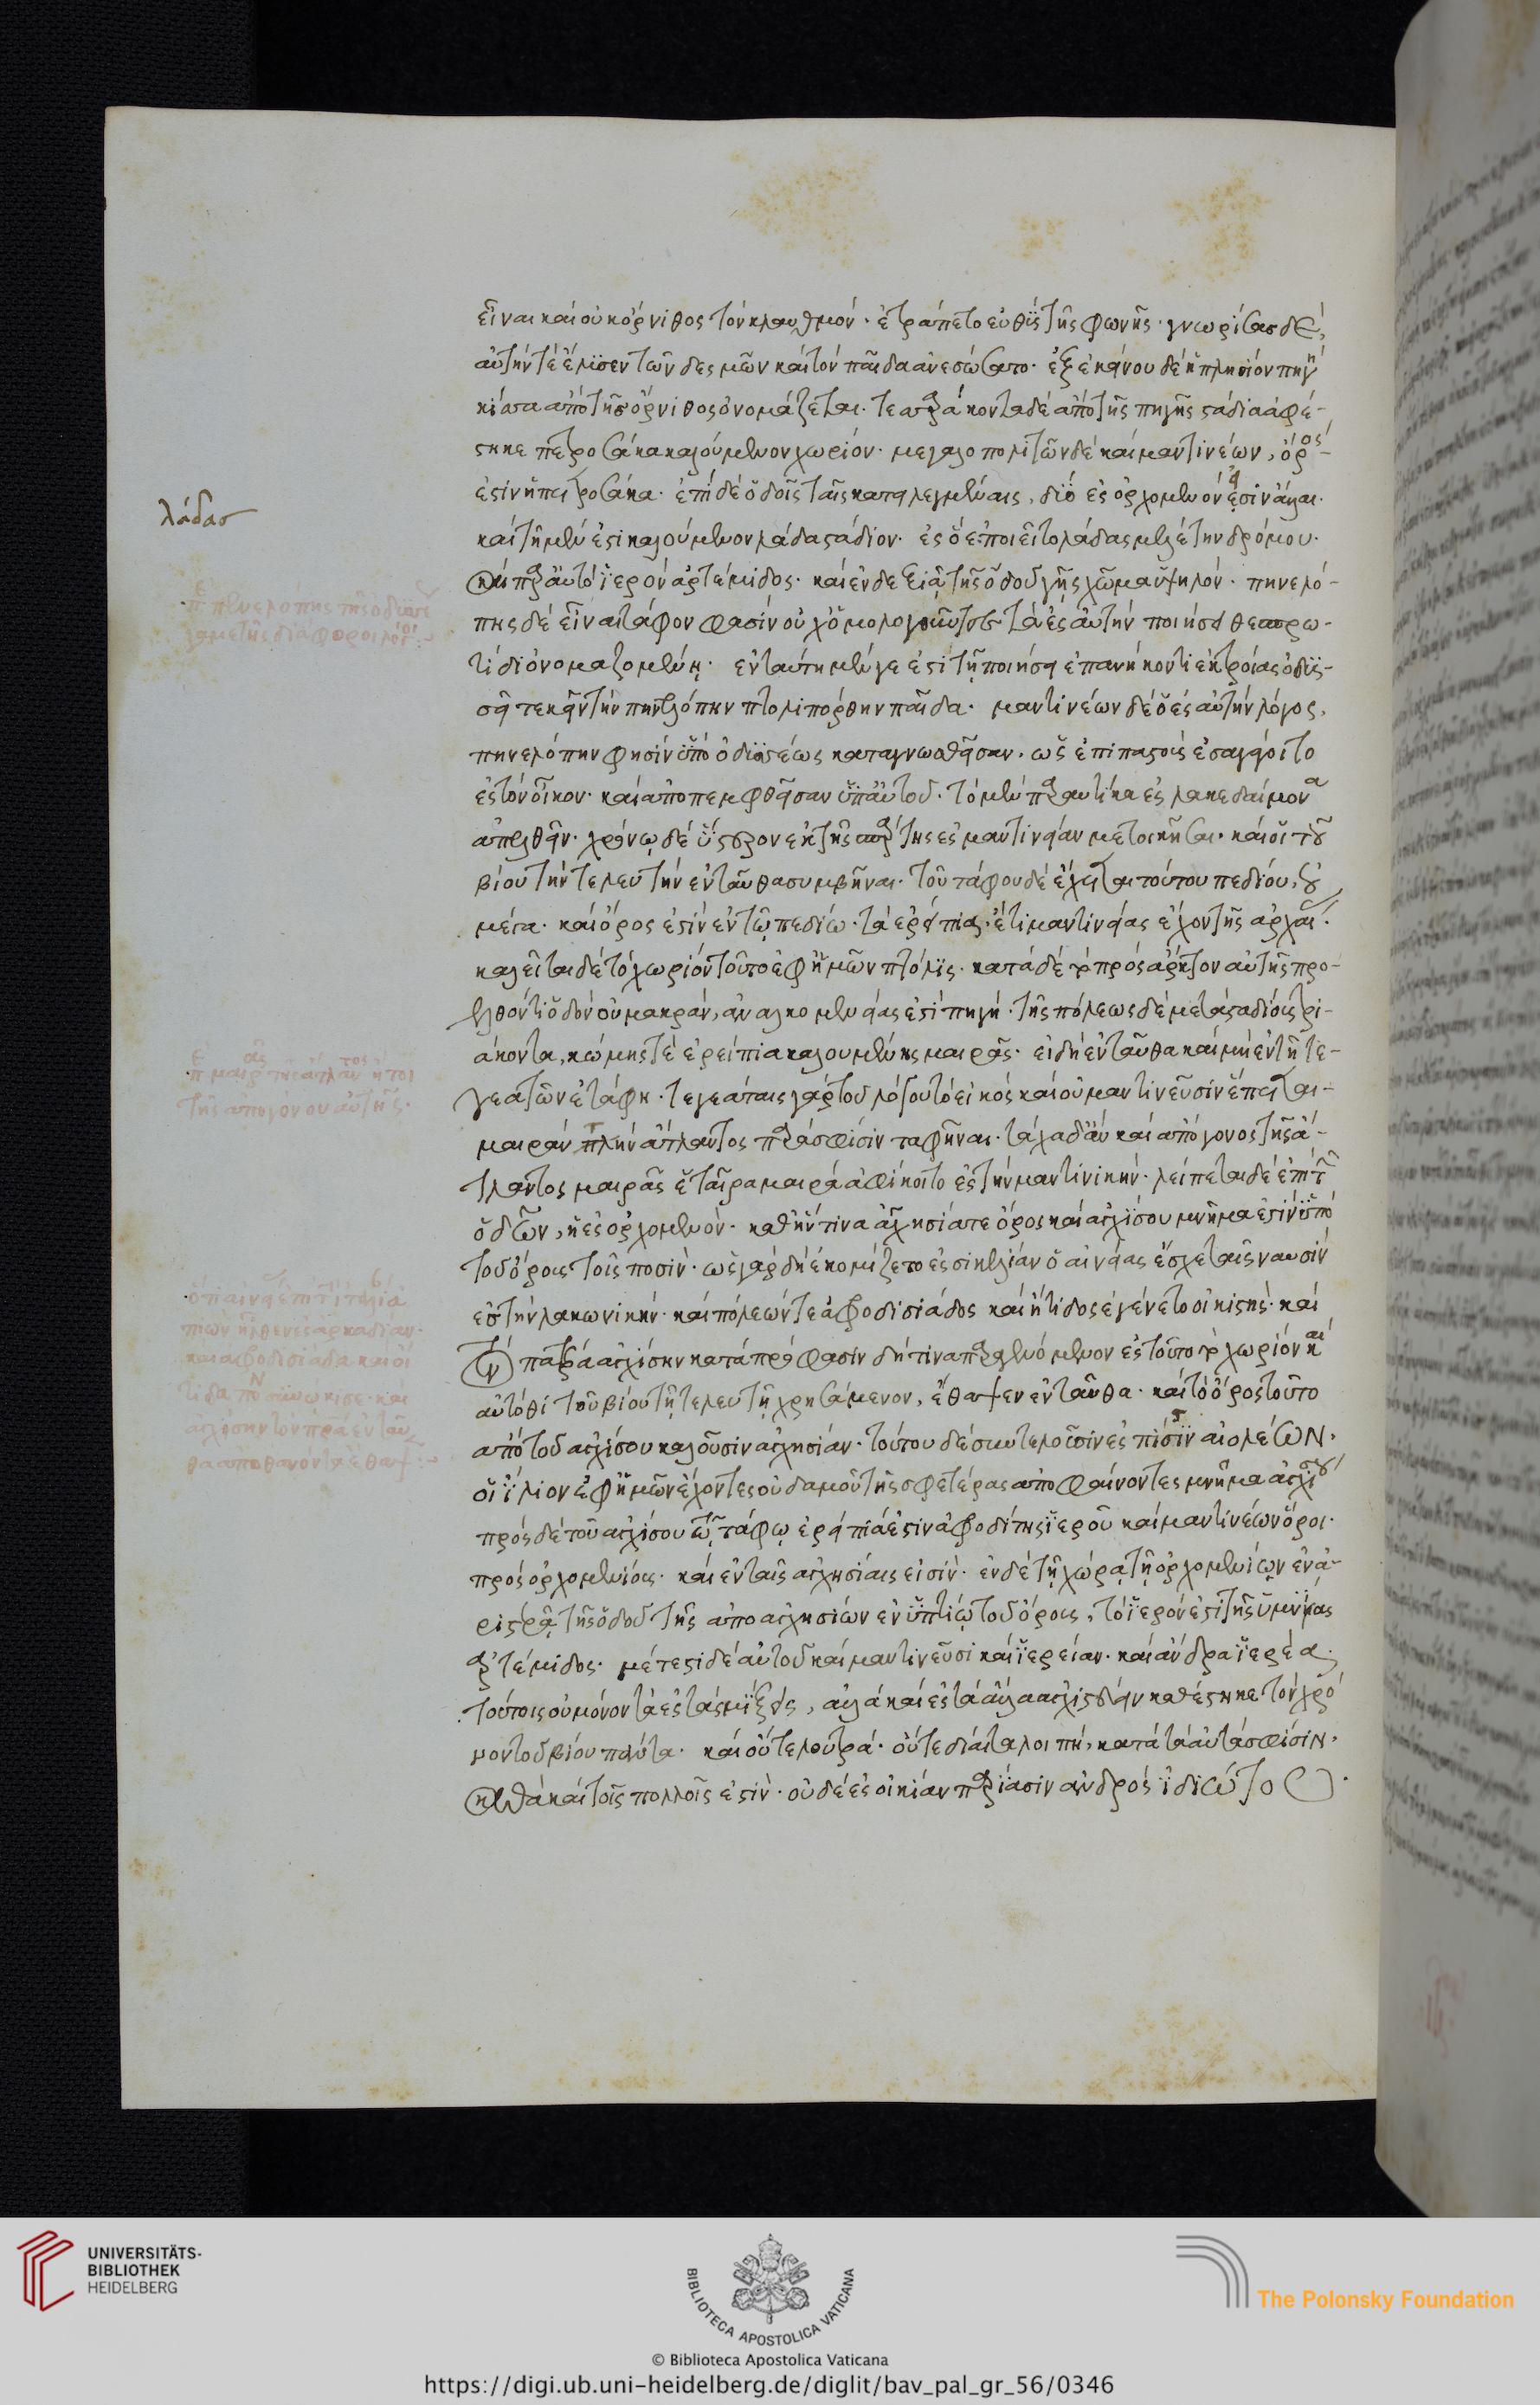 εἶναι καὶ οὐκ ὄρνιθος τὸν κλαυθμὸν· ἐτράπετο εὐθὺς τῆς φωνῆς· γνωρίσας δὲ,
αὐτήν τε ἔλυσεν τῶν δεσμῶν καὶ τὸν παῖδα ἀνεσώσατο· ἐξ ἐκείνου δὲ ἡ πλησίον πηγὴ
κίσσα ἀπὸ τῆς ὄρνιθος ὀνομάζεται. τεσσαράκοντα δὲ ἀπὸ τῆς πηγῆς στάδια ἀφέ-
στηκε πετροσάκα καλούμενον χωρίον· μεγαλοπολιτῶν δὲ καὶ μαντινέων, ὅρος
ἐστὶν ἡ πετροσάκα. ἐπὶ δὲ ὁδοῖς ταῖς κατειλεγμέναις, δύο ἐς ὀρχομενόν εἰσιν ἄλλαι.
καὶ τῇ μέν ἐστι καλούμενον λάδα στάδιον· ἐς ὃ ἐποιεῖτο λάδας μελέτην δρόμου.
καὶ παρ' αὐτὸ ἱερὸν ἀρτέμιδος· καὶ ἐν δεξιᾷ τῆς ὁδοῦ γῆς χῶμα ὑψηλόν. πηνελό-
λάδασ
πης δὲ εἶναι τάφον φασίν οὐχ ὁμολογοῦντες τὰ ἐς αὐτὴν ποιήσει θεσπρω-
τίδι ὀνομαζομένῃ. ἐν ταύτῃ μέν γε ἐστὶ τῇ ποιήσει ἐπανήκοντι ἐκ τροίας ὀδυσ-
σεῖ τεκεῖν τὴν πηνελόπην πτολιπόρθην παῖδα· μαντινέων δὲ ὁ ἐς αὐτὴν λόγος,
πηνελόπην φησὶν ὑπὸ ὀδυσσέως καταγνωσθεῖσαν, ὡς ἐπιπαστοὺς ἐσαγάγοιτο
ἐς τὸν οἶκον· καὶ ἀποπεμφθεῖσαν ὑπ' αὐτοῦ. τὸ μὲν παραυτίκα ἐς λακεδαίμονα
ἀπελθεῖν· χρόνῳ δὲ ὕστερον ἐκ τῆς σπάρτης ἐς μαντίνειαν μετοικῆσαι· καὶ οἱ τοῦ
βίου τὴν τελευτὴν ἐνταῦθα συμβῆναι. τοῦ τάφου δὲ ἔχεται τούτου πεδίον, οὐ
μέγα· καὶ ὄρος ἐστὶν ἐν τῷ πεδίῳ. τὰ ἐρείπια, ἔτι μαντινείας ἔχον τῆς ἀρχαί.
καλεῖται δὲ τὸ χωρίον τοῦτο ἐφ' ἡμῶν πτόλις. κατὰ δὲ τὸ πρὸς ἄρκτον αὐτῆς προ-
ελθόντι ὁδὸν οὐ μακράν, ἀναλκομενείας ἐστὶ πηγή. τῆς πόλεως δὲ μετὰ σταδίους τρι-
άκοντα, κώμης τε ἐρείπια καλουμένης μαιρᾶς. εἰ δὴ ἐνταῦθα καὶ μὴ ἐν τῇ τε-
γεατῶν ἐτάφη. τεγεάταις γὰρ τοῦ λόγου τὸ εἰκὸς καὶ οὐ μαντινεῦσιν ἕπεται.
μαιρὰν πλὴν ἄτλαντος παρὰ σφίσιν ταφῆναι. τάχα δ' ἂν καὶ ἀπόγονος τῆς ἀ-
τλαντος μαιρᾶς ἑταῖρα μαιρὰ ἀφίκοιτο ἐς τὴν μαντινικήν. λείπεται δὲ ἔτι τῶν
ὁδῶν, ἡ ἐς ὀρχομενόν. καθ' ἥντινα ἀγχησία τε ὄρος καὶ ἀγχίσου μνῆμα ἐστὶν ὑπὸ
τοῦ ὄρους τοῖς ποσίν. ὡς γὰρ δὴ ἐκομίζετο ἐς σικελίαν ὁ αἰνείας ἔσχε ταῖς ναυσὶν
ἐς τὴν λακωνικήν· καὶ πόλεών τε ἀφροδισιάδος καὶ ἤτιδος ἐγένετο οἰκιστής· καὶ
τὸν πατέρα ἀγχίσην κατὰ πρόφασιν δή τινα παραγενόμενον ἐς τοῦτο τὸ χωρίον καὶ
αὐτόθι τοῦ βίου τῇ τελευτῇ χρησάμενον, ἔθαψεν ἐνταῦθα. καὶ τὸ ὄρος τοῦτο
ἀπὸ τοῦ ἀγχίσου καλοῦσιν ἀγχησίαν. τούτου δὲ συντελοῦσιν ἐς πίστιν αἰολέων.
οἳ ἴλιον ἐφ' ἡμῶν ἔχοντες οὐδαμοῦ τῆς σφετέρας ἀποφαίνοντες μνῆμα ἀγχίσου
πρὸς δὲ τοῦ ἀγχίσου τῷ τάφῳ ἐρείπιά ἐστιν ἀφροδίτης ἱεροῦ καὶ μαντινέων ὅροι.
πρὸς ὀρχομενίους καὶ ἐν ταῖς ἀγχησίαις εἰσίν. ἐν δὲ τῇ χώρᾳ τῇ ὀρχομενίων ἐν ἀ-
ριστερᾷ τῆς ὁδοῦ τῆς ἀπὸ ἀγχησιῶν ἐν ὑπτίῳ τοῦ ὄρους, τὸ ἱερόν ἐστι τῆς ὑμνίας
ἀρτέμιδος. μέτεστι δὲ αὐτοῦ καὶ μαντινεῦσι καὶ ἱερείαν· καὶ ἄνδρα ἱερέα.
τούτοις οὐ μόνον τὰ ἐς τὰς μίξεις, ἀλλὰ καὶ ἐς τὰ ἄλλα ἁγιστεύειν καθέστηκε τὸν χρό
νον τοῦ βίου πάντα. καὶ οὔτε λουτρὰ· οὔτε δίαιτα λοιπή, κατὰ τὰ αὐτὰ σφίσιν.
καθὰ καὶ τοῖς πολλοῖς ἐστίν· οὐδὲ ἐς οἰκίαν παρίασιν ἀνδρὸς ἰδιώτου.
UNIVERSITÄTS-
BIBLIOTHEK
HEIDELBERG
BIBLIOTECA APOSTOLICA VATICANA
The Polonsky Foundation
© Biblioteca Apostolica Vaticana
https://digi.ub.uni-heidelberg.de/diglit/bav_pal_gr_56/0346